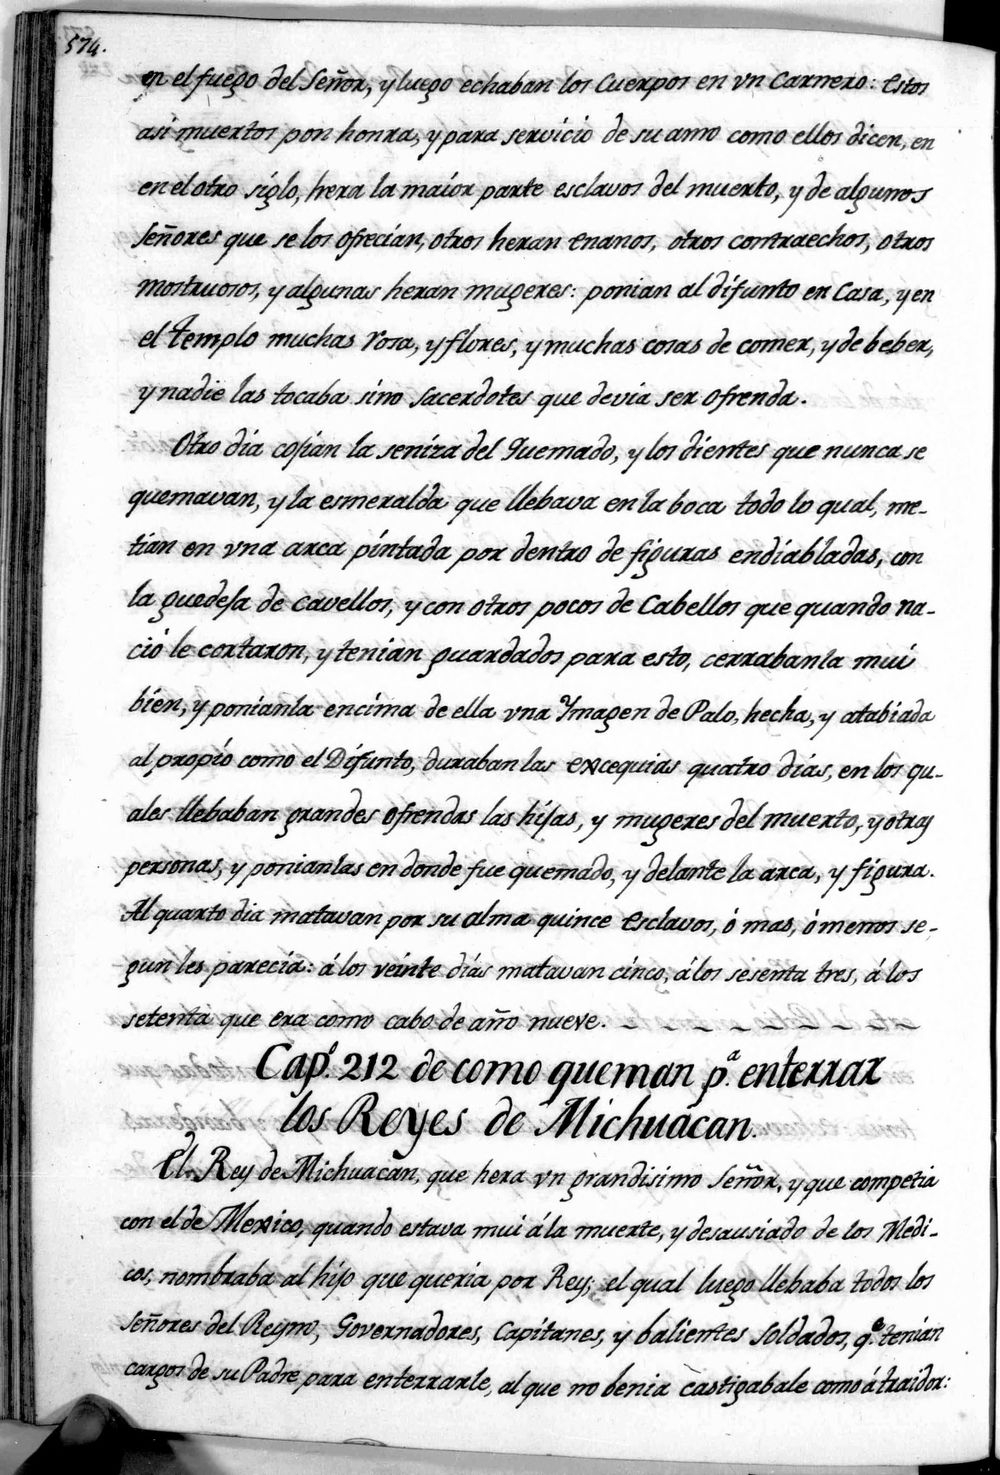 574.
en el fuego del Señor, y luego echaban los Cuerpos en vn Carnero: Estos
asi muertos pon honra, y para servicio de su amo como ellos dicen, en
en el otro siglo, hera la maior parte esclavos del muerto, y de algunos
Señores que se los ofrecian, otros heran Enanos, otros contraechos, otros
mostruosos, y algunas heran mugeres: ponian al difunto en Casa, y en
el Templo muchas rosa, y flores, y muchas cosas de comer, y de beber,
y nadie las tocaba sino Sacerdotes que devia ser ofrenda.
Otro dia cojian la seniza del Quemado, y los dientes que nunca se
quemavan, y la esmeralda que llebava en la boca todo lo qual, me-
tian en vna arca pintada por dentro de figuras endiabladas, con
la guedeja de cavellos, y con otros pocos de Cabellos que quando na-
ció le cortaron, y tenian guardados para esto, cerrabanla mui
bien, y ponianla encima de ella vna Ymagen de Palo, hecha, y atabiada
al propio como el Difunto, duraban las excequias quatro dias, en los qu-
ales llebaban grandes ofrendas las hijas, y mugeres del muerto, y otras
personas, y ponianlas en donde fue quemado, y delante la arca, y figura.
Al quarto dia matavan por su alma quince Esclavos, ó mas, ó menos se-
gun les parecia: á los veinte dias matavan cinco, á los sesenta tres, á los
setenta que era como cabo de año nueve.
Capº. 212 de como queman pª. enterrar
los Reyes de Michuacan.
El Rey de Michuacan, que hera vn grandisimo Señor, y que competia
con el de Mexico, quando estava mui á la muerte, y desausiado de los Medi-
cos, nombraba al hijo que queria por Rey; el qual luego llebaba todos los
Señores del Reyno, Governadores, Capitanes, y balientes Soldados, qe. tenian
cargos de su Padre para enterrarle, al que no benia castigabale como á traidor: